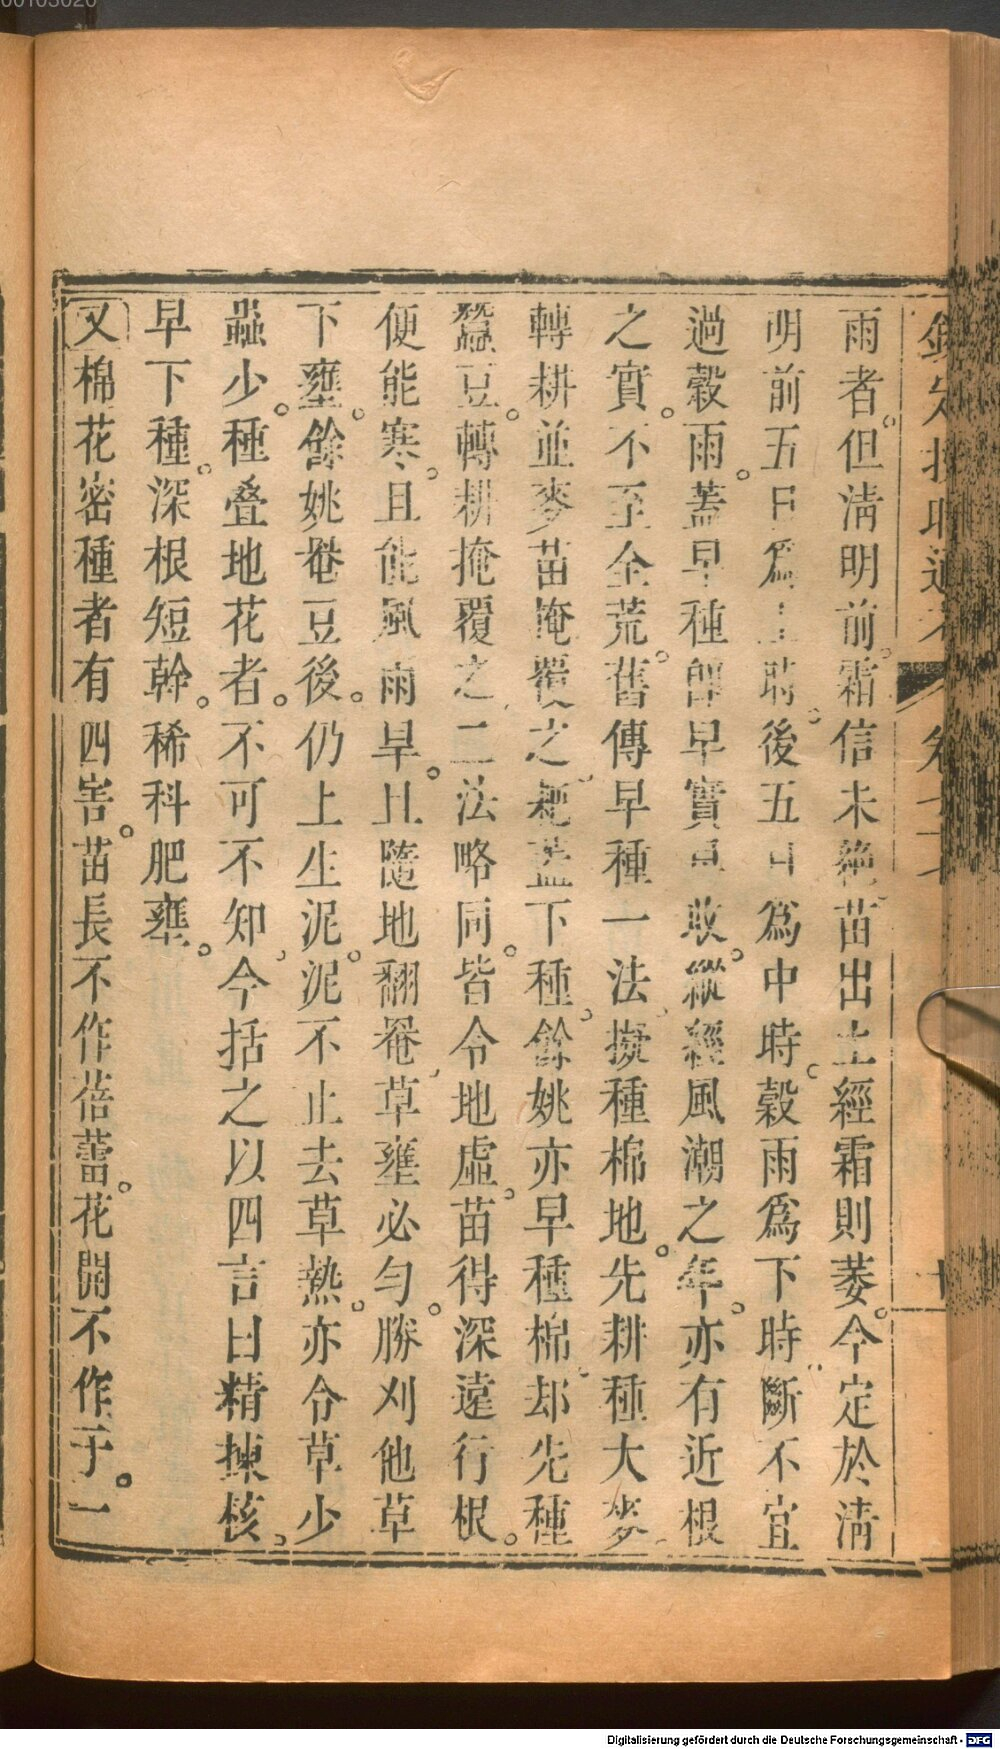 雨者。但清明前。霜信未絶。苗出土經霜則萎。今定於清
明前五日爲上時。後五日爲中時。穀雨爲下時。斷不宜
過穀雨。蓋早種卽早實早收。縱經風潮之年。亦有近根
之實。不至全荒。舊傳早種一法。擬種棉地。先耕種大麥。
轉耕並麥苗掩覆之。耙蓋下種。餘姚亦早種棉。却先種
蠶豆。轉耕掩覆之。二法略同。皆令地虛。苗得深遠行根。
便能寒。且能風雨旱。且隨地翻罨。草壅必勻。勝刈他草
下壅。餘姚罨豆後。仍上生泥。泥不止去草熱。亦令草少
蟲少。種叠地花者。不可不知。今括之以四言曰精揀核。
早下種。深根短幹。稀科肥壅。
又棉花密種者有四害。苗長不作蓓蕾。花開不作子。一
欽定授時通考 卷七十七
00103020
Digitalisierung gefördert durch die Deutsche Forschungsgemeinschaft - DFG